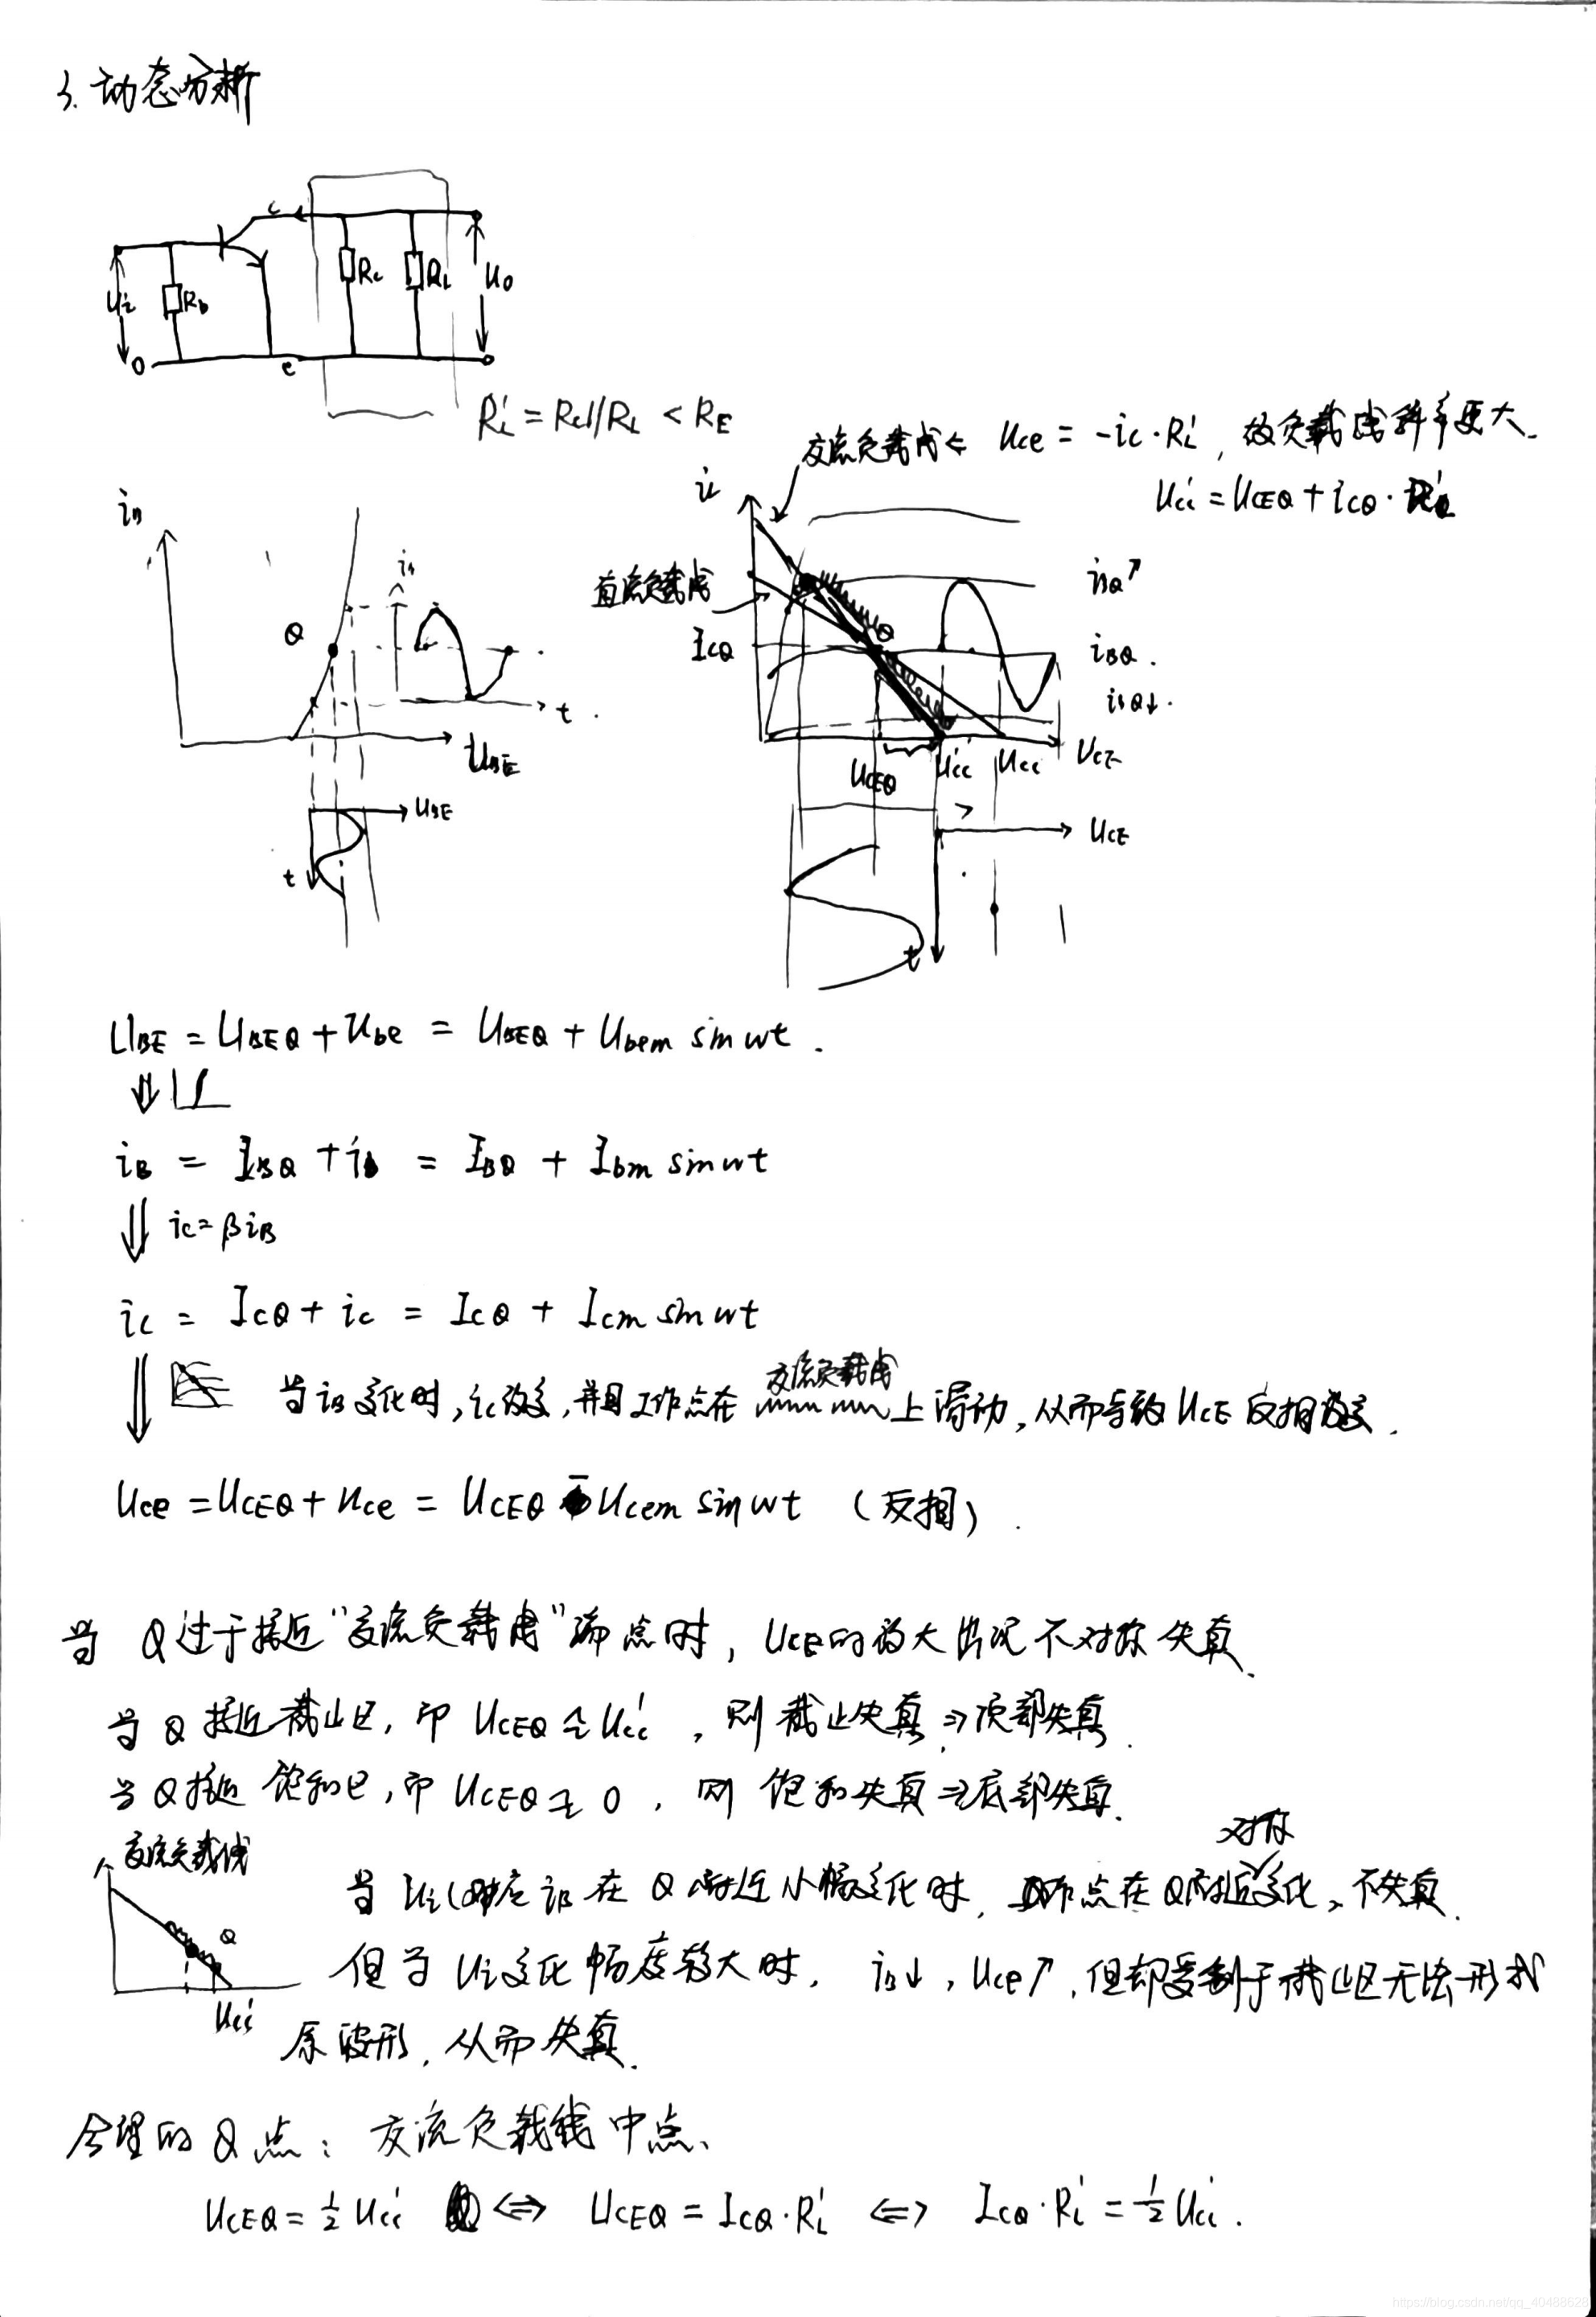 3. 动态分析
c
Ui
Rb
Rc
RL
Uo
o
e
RL' = Rc//RL < RE
交流负载线 ⇐ Uce = -ic·RL', 故负载线斜率更大.
Ucc' = UCEQ + ICQ·RL'
iB
Q
iB
t
UBE
UBE
t
ic
直流负载线
ICQ
Q
iBQ↗
iBQ.
iBQ↓.
UCEQ
Ucc'
Ucc
UCE
UCE
t
UBE = UBEQ + Ube = UBEQ + Ubem sin wt.
⇓
iB = IBQ + ib = IBQ + Ibm sin wt
⇓ ic = βiB
ic = ICQ + ic = ICQ + Icm sin wt
交流负载线
⇓ 当iB变化时, ic改变, 并且工作点在 上滑动, 从而导致UCE反相改变.
Uce = UCEQ + Uce = UCEQ - Ucem sin wt (反相).
当 Q过于接近"交流负载线"端点时, UCE的放大出现不对称失真.
当Q接近截止区, 即 UCEQ ≌ Ucc', 则截止失真 ⇒ 顶部失真.
当Q接近饱和区, 即 UCEQ ≌ 0, 则 饱和失真 ⇒ 底部失真.
交流负载线
Q
Ucc'
对称
当 Ui(对应iB在Q附近小幅变化时, 工作点在Q附近变化, 不失真.
但当 Ui变化幅度较大时, iB↓, Uce↗, 但却受制于截止区无法形成
原波形, 从而失真.
合理的Q点: 交流负载线中点.
UCEQ = ½ Ucc' ⇔ UCEQ = ICQ·RL' ⇔ ICQ·RL' = ½ Ucc'.
https://blog.csdn.net/qq_40488628